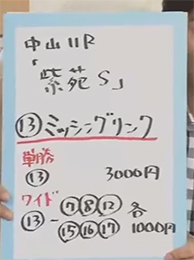 中山11R
「紫苑S」
⑬ミッシングリンク
単勝
⑬ 3000円
ワイド
⑬-⑦⑧⑫ 各
⑮⑯⑰ 1000円